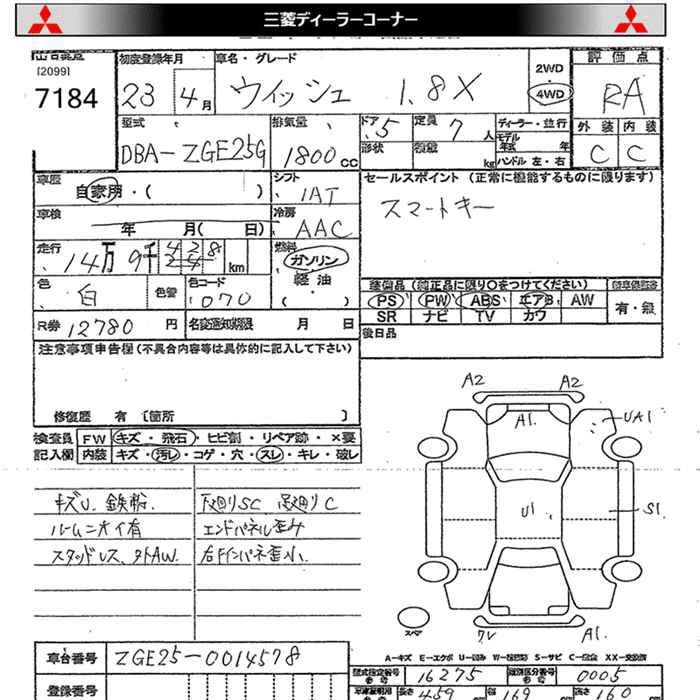 三菱ディーラーコーナー
[2099]
7184
初度登録年月
23 4月
車名・グレード
ウィッシュ 1.8X
2WD
4WD
評価点
RA
外装 内装
C C
型式
DBA-ZGE25G
排気量
1800cc
ドア 5
形状
定員 7人
積載 kg
ディーラー・並行
モデル年式 年
ハンドル 左・右
車歴
自家用・( )
シフト
IAT
セールスポイント(正常に機能するものに限ります)
スマートキー
車検
年 月( 日)
冷房
AAC
走行
14万9千428
248
km
燃料
ガソリン
軽油
・( )
色
白
色替
色コード
070
装備品(純正品に限り○をつけてください)
PS PW ABS エアB AW
SR ナビ TV カワ
有・無
R券 12780円
名変通知期限 月 日
後日品
注意事項申告欄(不具合内容等は具体的に記入して下さい)
修復歴 有〔箇所 〕
検査員 FW キズ・飛石・ヒビ割・リペア跡・×要
記入欄 内装 キズ・汚レ・コゲ・穴・スレ・キレ・破レ
キズU、鉄粉
ルームニオイ有
スタッドレス、夕トAW.
下廻りSC 足廻りC
エンドパネル歪み
右Fインパネ歪小.
A2 A2
A1.
UA1
U1
S1
スペア
A1.
A-キズ E-エクボ U-凹み W-補修跡 S-サビ C-腐蝕 XX-交換済
車台番号 ZGE25-0014578
登録番号
型式指定番号 16275
類別区分番号 0005
長さ 459 幅 169 高さ 160